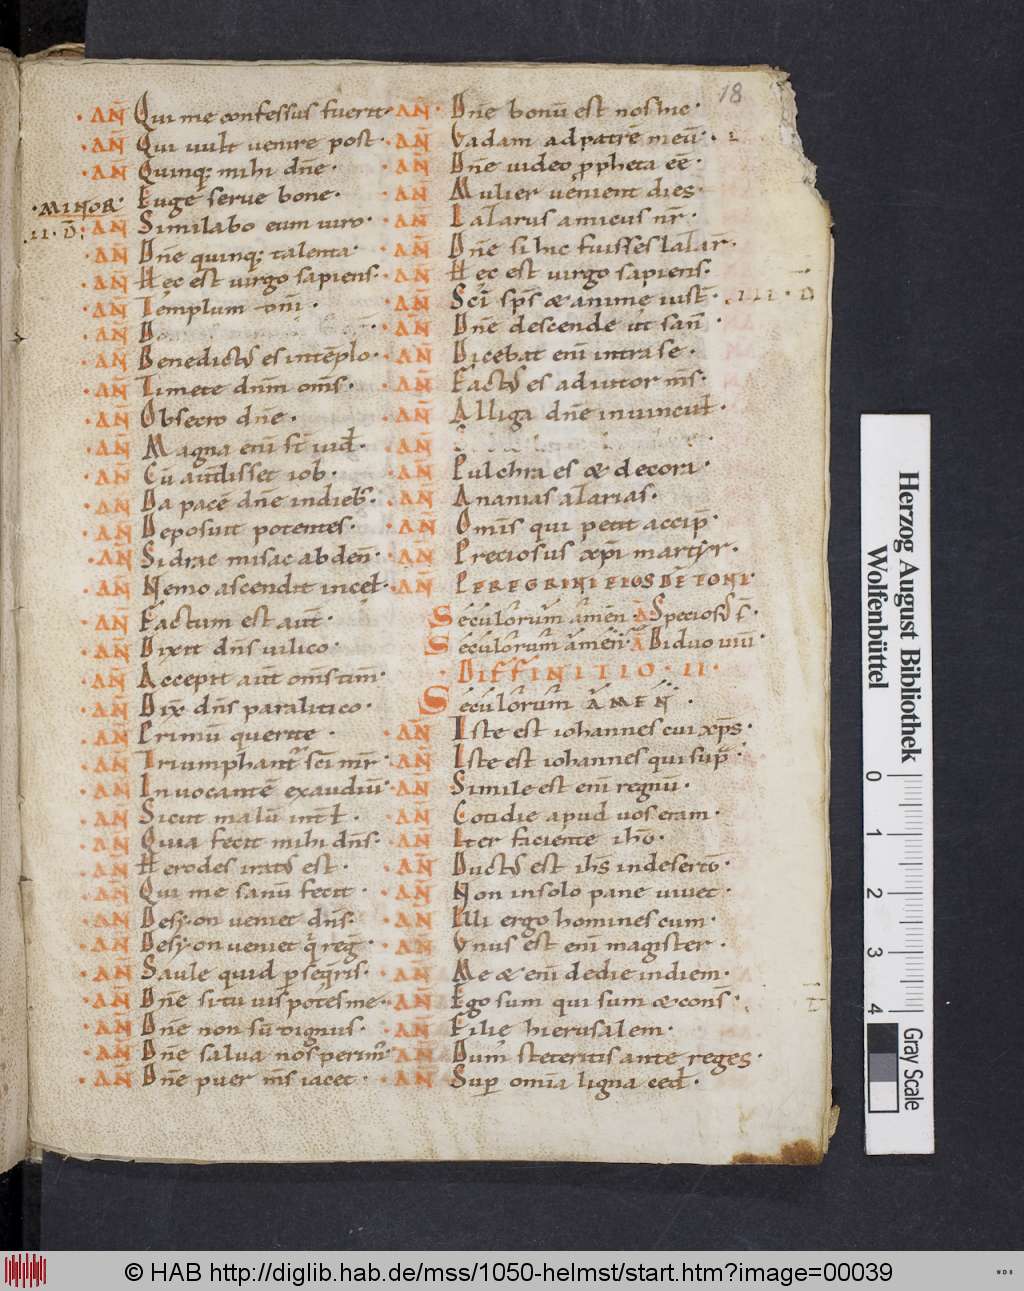 18
·AN̄ Qui me confessus fuerit·
·AN̄ Qui uult uenire post·
·AN̄ Quinq; mihi dn̄e·
·MINOR· Euge serue bone·
·II·D̄: AN̄ Similabo eum uiro·
·AN̄ Dn̄e quinq; talenta·
·AN̄ Hec est uirgo sapiens·
·AN̄ Templum dn̄i·
·AN̄
·AN̄ Benedictus es in tēplo·
·AN̄ Timete dnm̄ om̄s·
·AN̄ Obsecro dn̄e·
·AN̄ Magna eni st̄ iud·
·AN̄ Cū audisset iob·
·AN̄ Da pacē dn̄e indieb;·
·AN̄ Deposuit potentes·
·AN̄ Sidrac misac abden̄·
·AN̄ Nemo ascendit incel·
·AN̄ Factum est aut̄·
·AN̄ Dixit dn̄s uilico·
·AN̄ Accepit aut̄ om̄s tim̄·
·AN̄ Dix̄ dn̄s paralitico·
·AN̄ Primū querite·
·AN̄ Triumphant sc̄i m̄r·
·AN̄ Inuocantē exaudiui·
·AN̄ Sicut malū int̄·
·AN̄ Quia fecit mihi dn̄s·
·AN̄ Herodes iratus est·
·AN̄ Qui me sanū fecit·
·AN̄ De syon ueniet dn̄s·
·AN̄ De syon ueniet q̄ reḡ·
·AN̄ Saule quid p̄seq̄ris·
·AN̄ Dn̄e si tu uis potes me·
·AN̄ Dn̄e non sū dignus·
·AN̄ Dn̄e salua nos perim·
·AN̄ Dn̄e puer m̄s iacet·
AN̄· Dn̄e bonū est nos hic·
·AN̄ Vadam ad patrē meū·
·AN̄ Dn̄e uideo p̄pheta eē·
·AN̄ Mulier uenient dies·
·AN̄ Lazarus amicus nr̄·
·AN̄ Dn̄e si hic fuisses lazar̄·
·AN̄ Hec est uirgo sapiens·
·AN̄ Sc̄i sp̄s & anime iust̄· III·D
·AN̄ Dn̄e descende ut san̄·
·AN̄ Dicebat eni intra se·
·AN̄ Factus es adiutor m̄s·
·AN̄ Alliga dn̄e in uincul·
·AN̄
·AN̄ Pulchra es & decora·
·AN̄ Ananias azarias·
·AN̄ Om̄is qui petit accip̄·
·AN̄ Preciosus xp̄i martyr·
·AN̄ PEREGRINI EIUS DE TONI·
Seculorum amen· Ā· Speciosus f·
Seculorum amen· Ā Biduo uiu·
·DIFFINITIO·II·
Seculorum AMEN·
·AN̄ Iste est iohannes cui xp̄s·
·AN̄ Iste est iohannes qui sup̄·
·AN̄ Simile est eni regnū·
·AN̄ Cotidie apud uos eram·
·AN̄ Iter faciente ih̄o·
·AN̄ Ductus est ih̄s in deserto·
·AN̄ Non in solo pane uiuet·
·AN̄ Illi ergo homines cum·
·AN̄ Vnus est eni magister·
·AN̄ Me & eni de die in diem·
·AN̄ Ego sum qui sum & cons̄·
·AN̄ Filie hierusalem·
·AN̄ Dum steteritis ante reges·
·AN̄ Sup̄ omīa ligna ced·
Herzog August Bibliothek
Wolfenbüttel
0 1 2 3 4
Gray Scale
© HAB http://diglib.hab.de/mss/1050-helmst/start.htm?image=00039